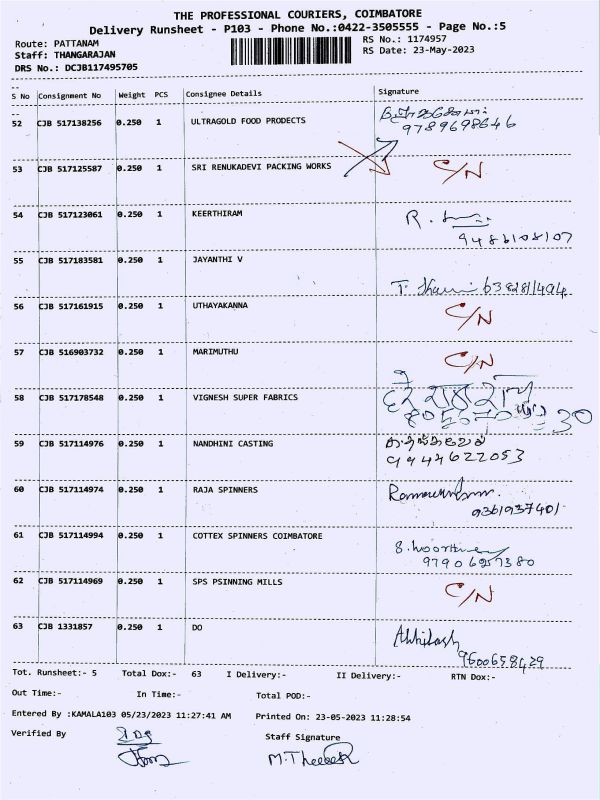 THE PROFESSIONAL COURIERS, COIMBATORE
Delivery Runsheet - P103 - Phone No.:0422-3505555 - Page No.:5
Route: PATTANAM
RS No.: 1174957
Staff: THANGARAJAN
RS Date: 23-May-2023
DRS No.: DCJB117495705
S No Consignment No Weight PCS Consignee Details Signature
52 CJB 517138256 0.250 1 ULTRAGOLD FOOD PRODECTS
9789698646
53 CJB 517125587 0.250 1 SRI RENUKADEVI PACKING WORKS C/N
54 CJB 517123061 0.250 1 KEERTHIRAM R.
9486108107
55 CJB 517183581 0.250 1 JAYANTHI V
T.
56 CJB 517161915 0.250 1 UTHAYAKANNA C/N
57 CJB 516903732 0.250 1 MARIMUTHU C/N
58 CJB 517178548 0.250 1 VIGNESH SUPER FABRICS
59 CJB 517114976 0.250 1 NANDHINI CASTING
9944622053
60 CJB 517114974 0.250 1 RAJA SPINNERS
9361937401
61 CJB 517114994 0.250 1 COTTEX SPINNERS COIMBATORE
9790657380
62 CJB 517114969 0.250 1 SPS PSINNING MILLS C/N
63 CJB 1331857 0.250 1 DO Abhilash
9600658429
Tot. Runsheet:- 5 Total Dox:- 63 I Delivery:- II Delivery:- RTN Dox:-
Out Time:- In Time:- Total POD:-
Entered By :KAMALA103 05/23/2023 11:27:41 AM Printed On: 23-05-2023 11:28:54
Verified By Staff Signature